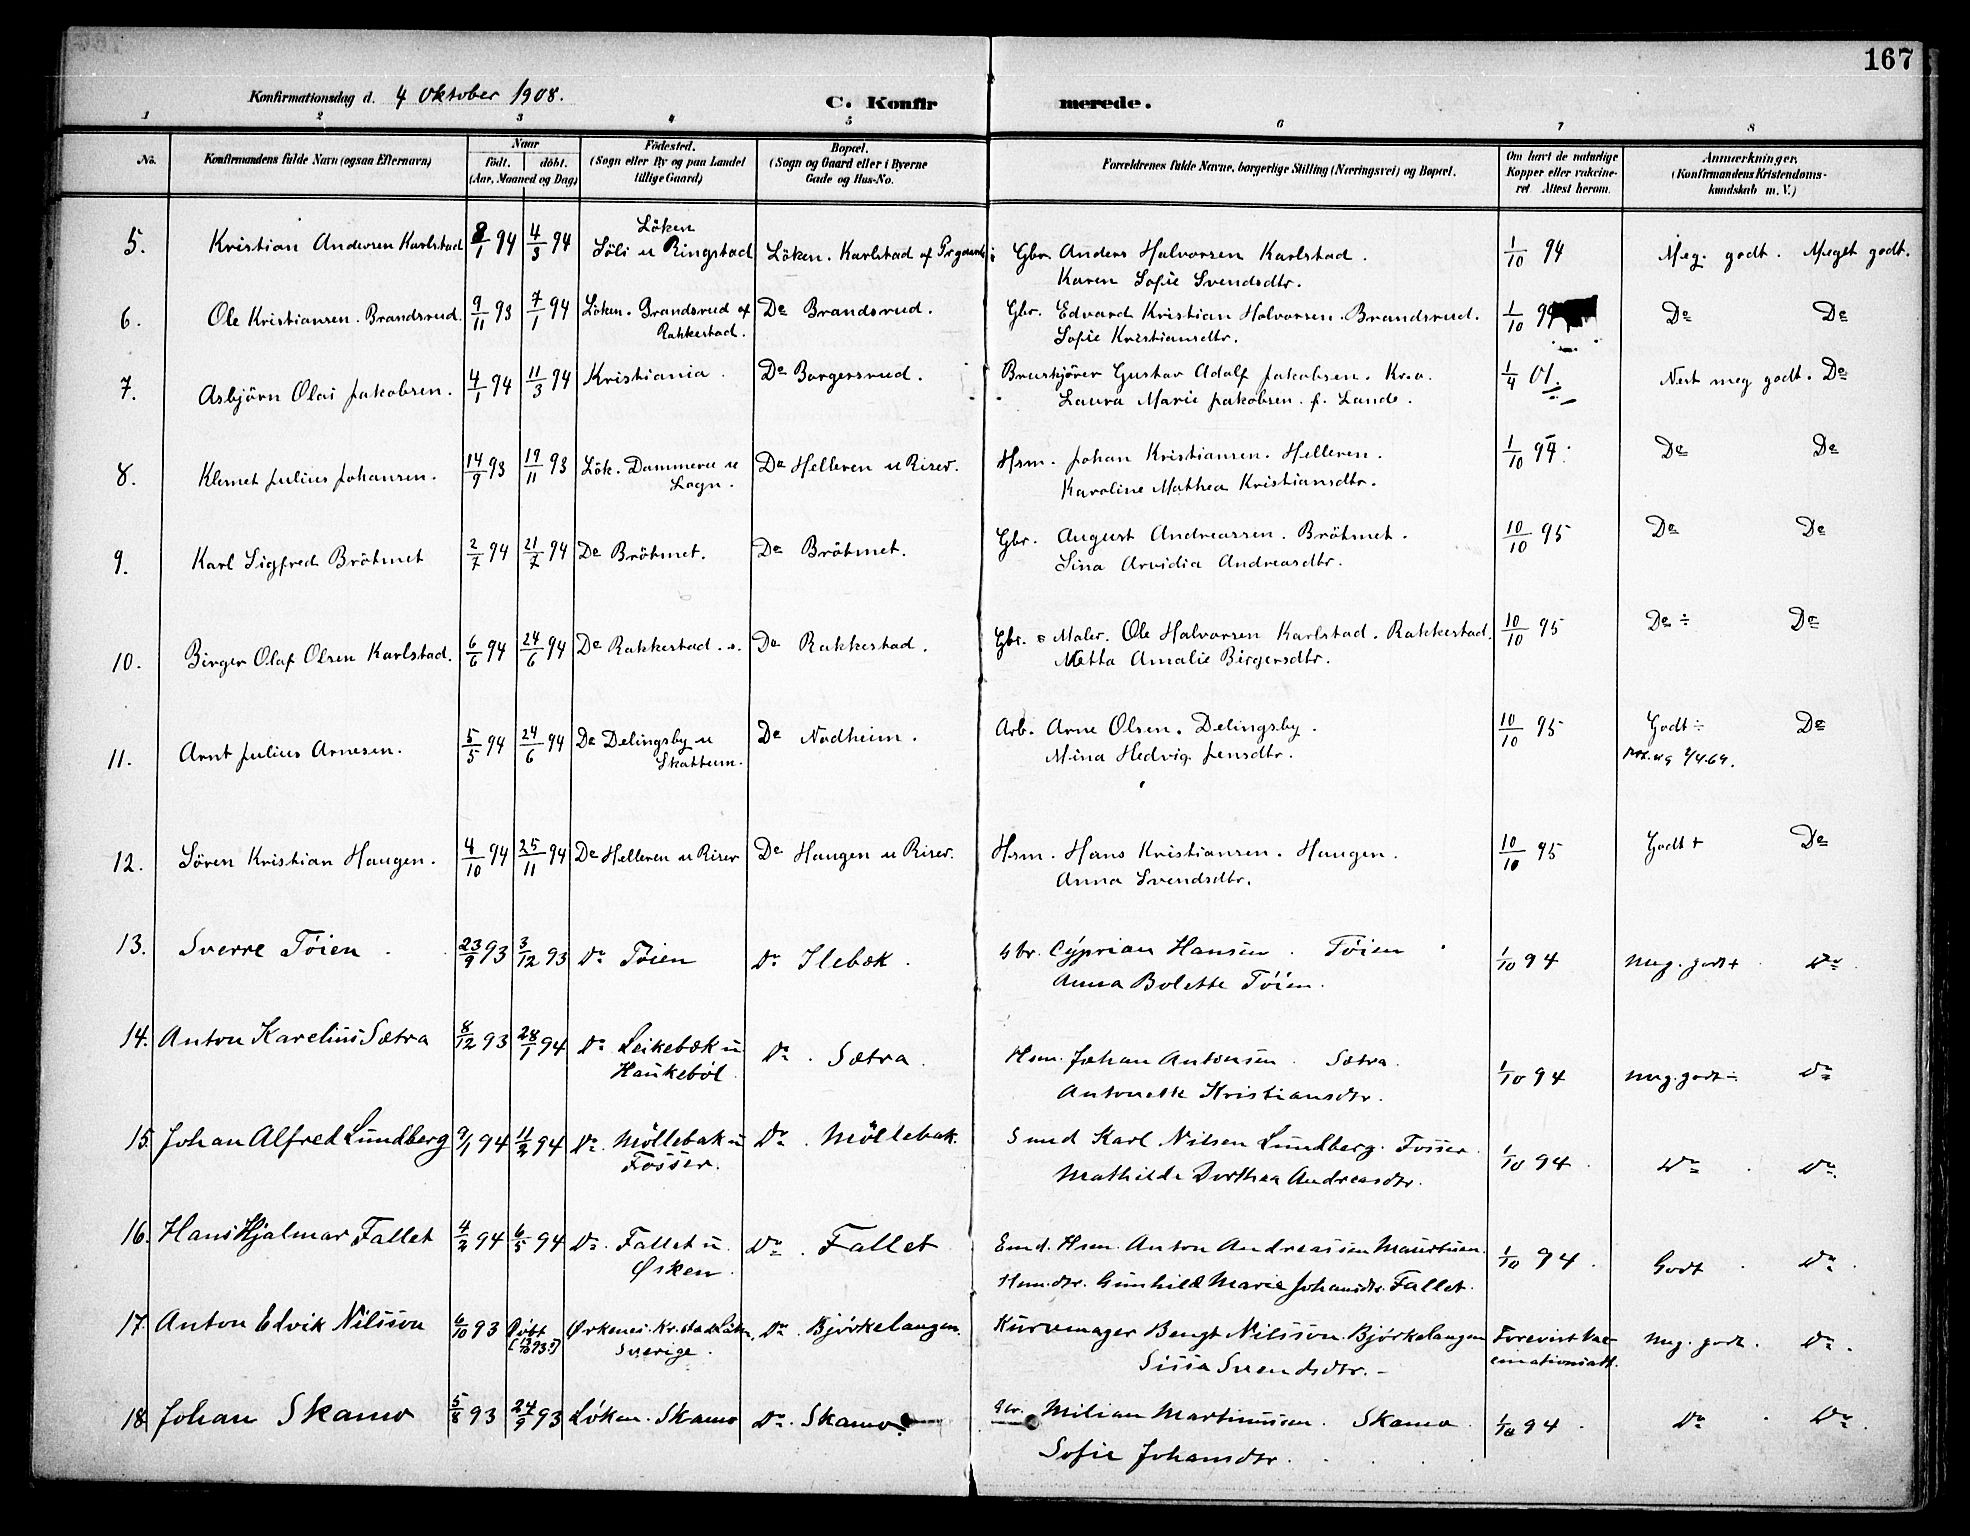 167
Konfirmationsdag d. 4 Oktober 1908.
C. Konfirmerede.
1 2 3 4 5 6 7 8
No.
Konfirmandens fulde Navn (ogsaa Efternavn)
Naar
født. døbt.
(Aar, Maaned og Dag)
Fødested.
(Sogn eller By og paa Landet
tillige Gaard)
Bopæl.
(Sogn og Gaard eller i Byerne
Gade og Hus-No.
Forældrenes fulde Navne, borgerlige Stilling (Næringsvei) og Bopæl.
Om havt de naturlige
Kopper eller vakcine-
ret Attest herom.
Anmærkninger,
(Konfirmandens Kristendoms-
kundskab m. V.)
Löken
5. Kristian Andersen Karlstad 8/1 94 4/3 94 Söli u Ringstad Löken. Karlstad af Gbr. Anders Halvorsen Karlstad. 1/10 94 Meg. godt. Meget godt.
Karen Sofie Svendsdtr.
6. Ole Kristiansen. Brandsrud. 9/11 93 7/1 94 Löken. Brandsrud af Do Brandsrud. Gbr. Edvard Kristian Halvorsen. Brandsrud. 1/10 94 Do Do
Rakkestad. Sofie Kristiansdtr.
7. Asbjörn Olai Jakobsen. 4/1 94 11/3 94 Kristiania. Do Borgersrud. Gustav Adolf Jakobsen. Kr.a. 1/4 01. Next meg godt. Do
Laura Marie Jakobsen. f. Lande.
8. Klemet Julius Johansen. 14/9 93 19/11 93 Lök. Dammern u Do Helleren u Riser. Hsm. Johan Kristiansen. Helleren. 1/10 94. Do Do
Sogn. Karoline Mathea Kristiansdtr.
9. Karl Sigfred Bråtmet 2/7 94 21/7 94 Do Bråtmet. Do Bråtmet. Gbr. August Andreassen. Bråtmet. 10/10 95 Do Do
Lina Arvidia Andreasdtr.
10. Birger Olaf Olsen Karlstad. 6/6 94 24/6 94 Do Rakkestad. Do Rakkestad. Gbr. o Maler. Ole Halvorsen Karlstad. Rakkestad. 10/10 95 Do ÷ Do
Metta Amalie Birgersdtr.
11. Arnt Julius Arnesen. 5/5 94 24/6 94 Do Delingsby u Do Nodheim. Arb. Arne Olsen. Delingsby. 10/10 95 Godt ÷ Do
Skattum. Mina Hedvig Jensdtr. 2/4.69.
12. Sören Kristian Haugen. 4/10 94 25/11 94 Do Helleren u Riser Do Haugen u Riser. Hsm. Hans Kristiansen. Haugen. 10/10 95 Godt + Do
Anna Svendsdtr.
13. Sverre Töien 23/9 93 3/12 93 Do Töien Do Ilebæk. Gbr. Cyprian Hansen. Töien 1/10 94 Meg. godt + Do
Anna Bolette Töien.
14. Anton Karelius Sætra 8/12 93 28/1 94 Do Leikebæk u Do. Sætra. Hsm. Johan Antonsen. Sætra. 1/10 94 Meg. godt ÷ Do
Haukeböl. Antonette Kristiansdtr.
15. Johan Alfred Lundberg 9/1 94 11/2 94 Do. Möllebak u Do. Möllebak. Smed Karl Nilsen Lundberg. Fosser. 1/10 94 Do Do.
Fosser. Mathilde Dorthea Andreasdtr.
16. Hans Hjalmar Fallet 4/2 94 6/5 94 Do. Fallet u. Do. Fallet Hsm. Anton Andreassen 1/10 94. Godt Do.
Ørken. Hsm.dtr. Gunhild Marie Johansdtr. Fallet.
17. Anton Edvik Nilsson 6/10 93 Döbt Ørkenes. Do. Björkelangen. Kurvmager Bengt Nilsson. Björkelangen Forevist Vac- Meg. godt. Do.
Sverige. Sissa Svendsdtr. – cinationsatt.
18. Johan Skamo 5/8 93 24/9 93 Löken. Skamo Do. Skamo. Gbr. Milian Martinussen. Skamo 1/10 94. Do Do
Sofie Johansdtr.